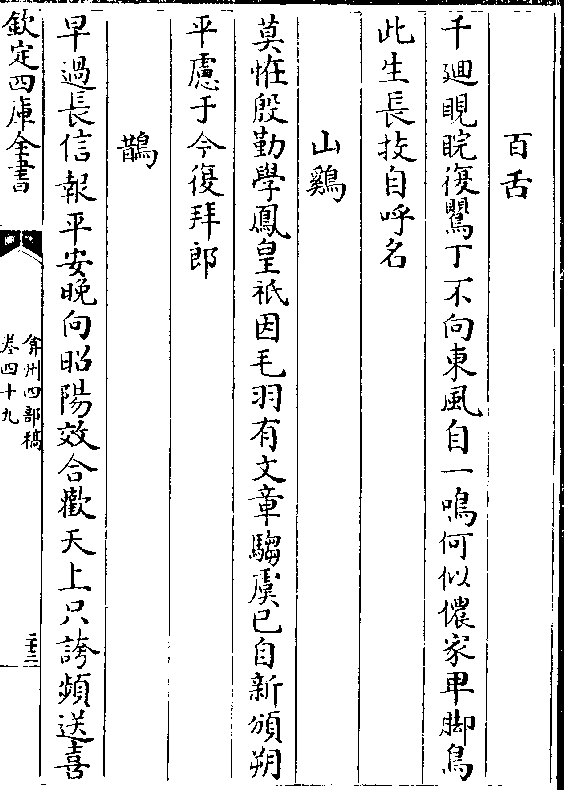 百舌
千廻睍睆復鸎丁不向東風自一鳴何似儂家甲脚鳥
此生長技自呼名
山鷄
莫恠殷勤學鳳皇祇因毛羽有文章騶虞已自新頒朔
平慮于今復拜郎
鵲
早過長信報平安晚向昭陽效合歡天上只誇頻送喜
欽定四庫全書
弇州四部稿
卷四十九
二十二